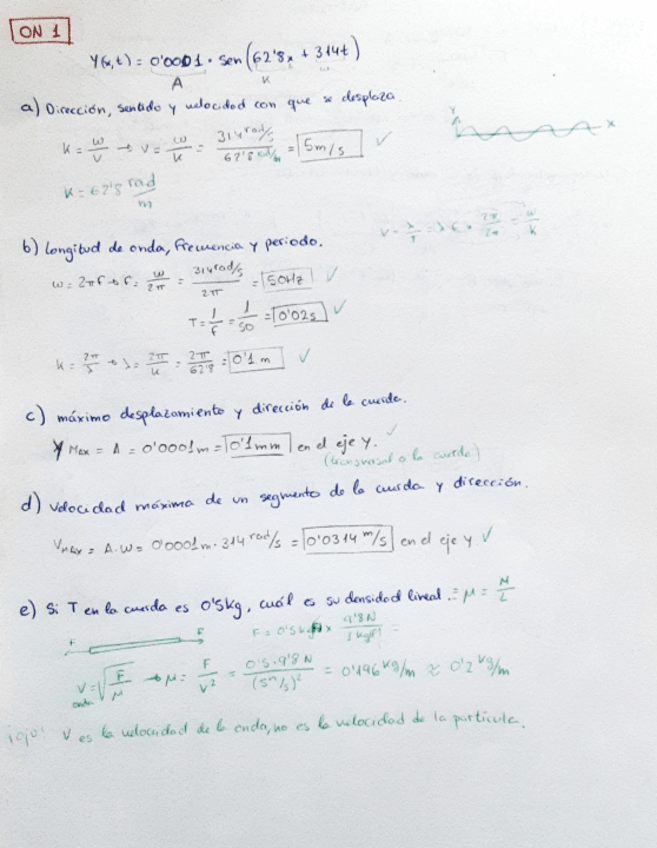 ON 1
Y(x,t) = 0'0001 · sen(62'8x + 314t)
A K w
a) Dirección, sentido y velocidad con que se desplaza.
K = w/v → v = w/K = 314 rad/s / 62'8 rad/m = 5m/s ✓
Y x
K = 62'8 rad/m
V = λ/T = λ f · 2π/2π = w/k
b) Longitud de onda, frecuencia y periodo.
w = 2πf → f = w/2π = 314 rad/s / 2π = 50Hz ✓
T = 1/f = 1/50 = 0'02s ✓
K = 2π/λ → λ = 2π/K = 2π/62'8 = 0'1 m ✓
c) máximo desplazamiento y dirección de la cuerda.
Y Max = A = 0'0001m = 0'1mm en el eje y. ✓
(transversal a la cuerda)
d) Velocidad máxima de un segmento de la cuerda y dirección.
VMAX = A·W = 0'0001m · 314 rad/s = 0'0314 m/s en el eje y ✓
e) Si T en la cuerda es 0'5kg, cuál es su densidad lineal. = μ = M/L
F F F = 0'5 kgf × 9'8N / 1 kgf =
V onda = √(F/μ) → μ = F/V² = 0'5·9'8 N / (5 m/s)² = 0'196 kg/m ≈ 0'2 kg/m
¡ojo! V es la velocidad de la onda, no es la velocidad de la partícula.